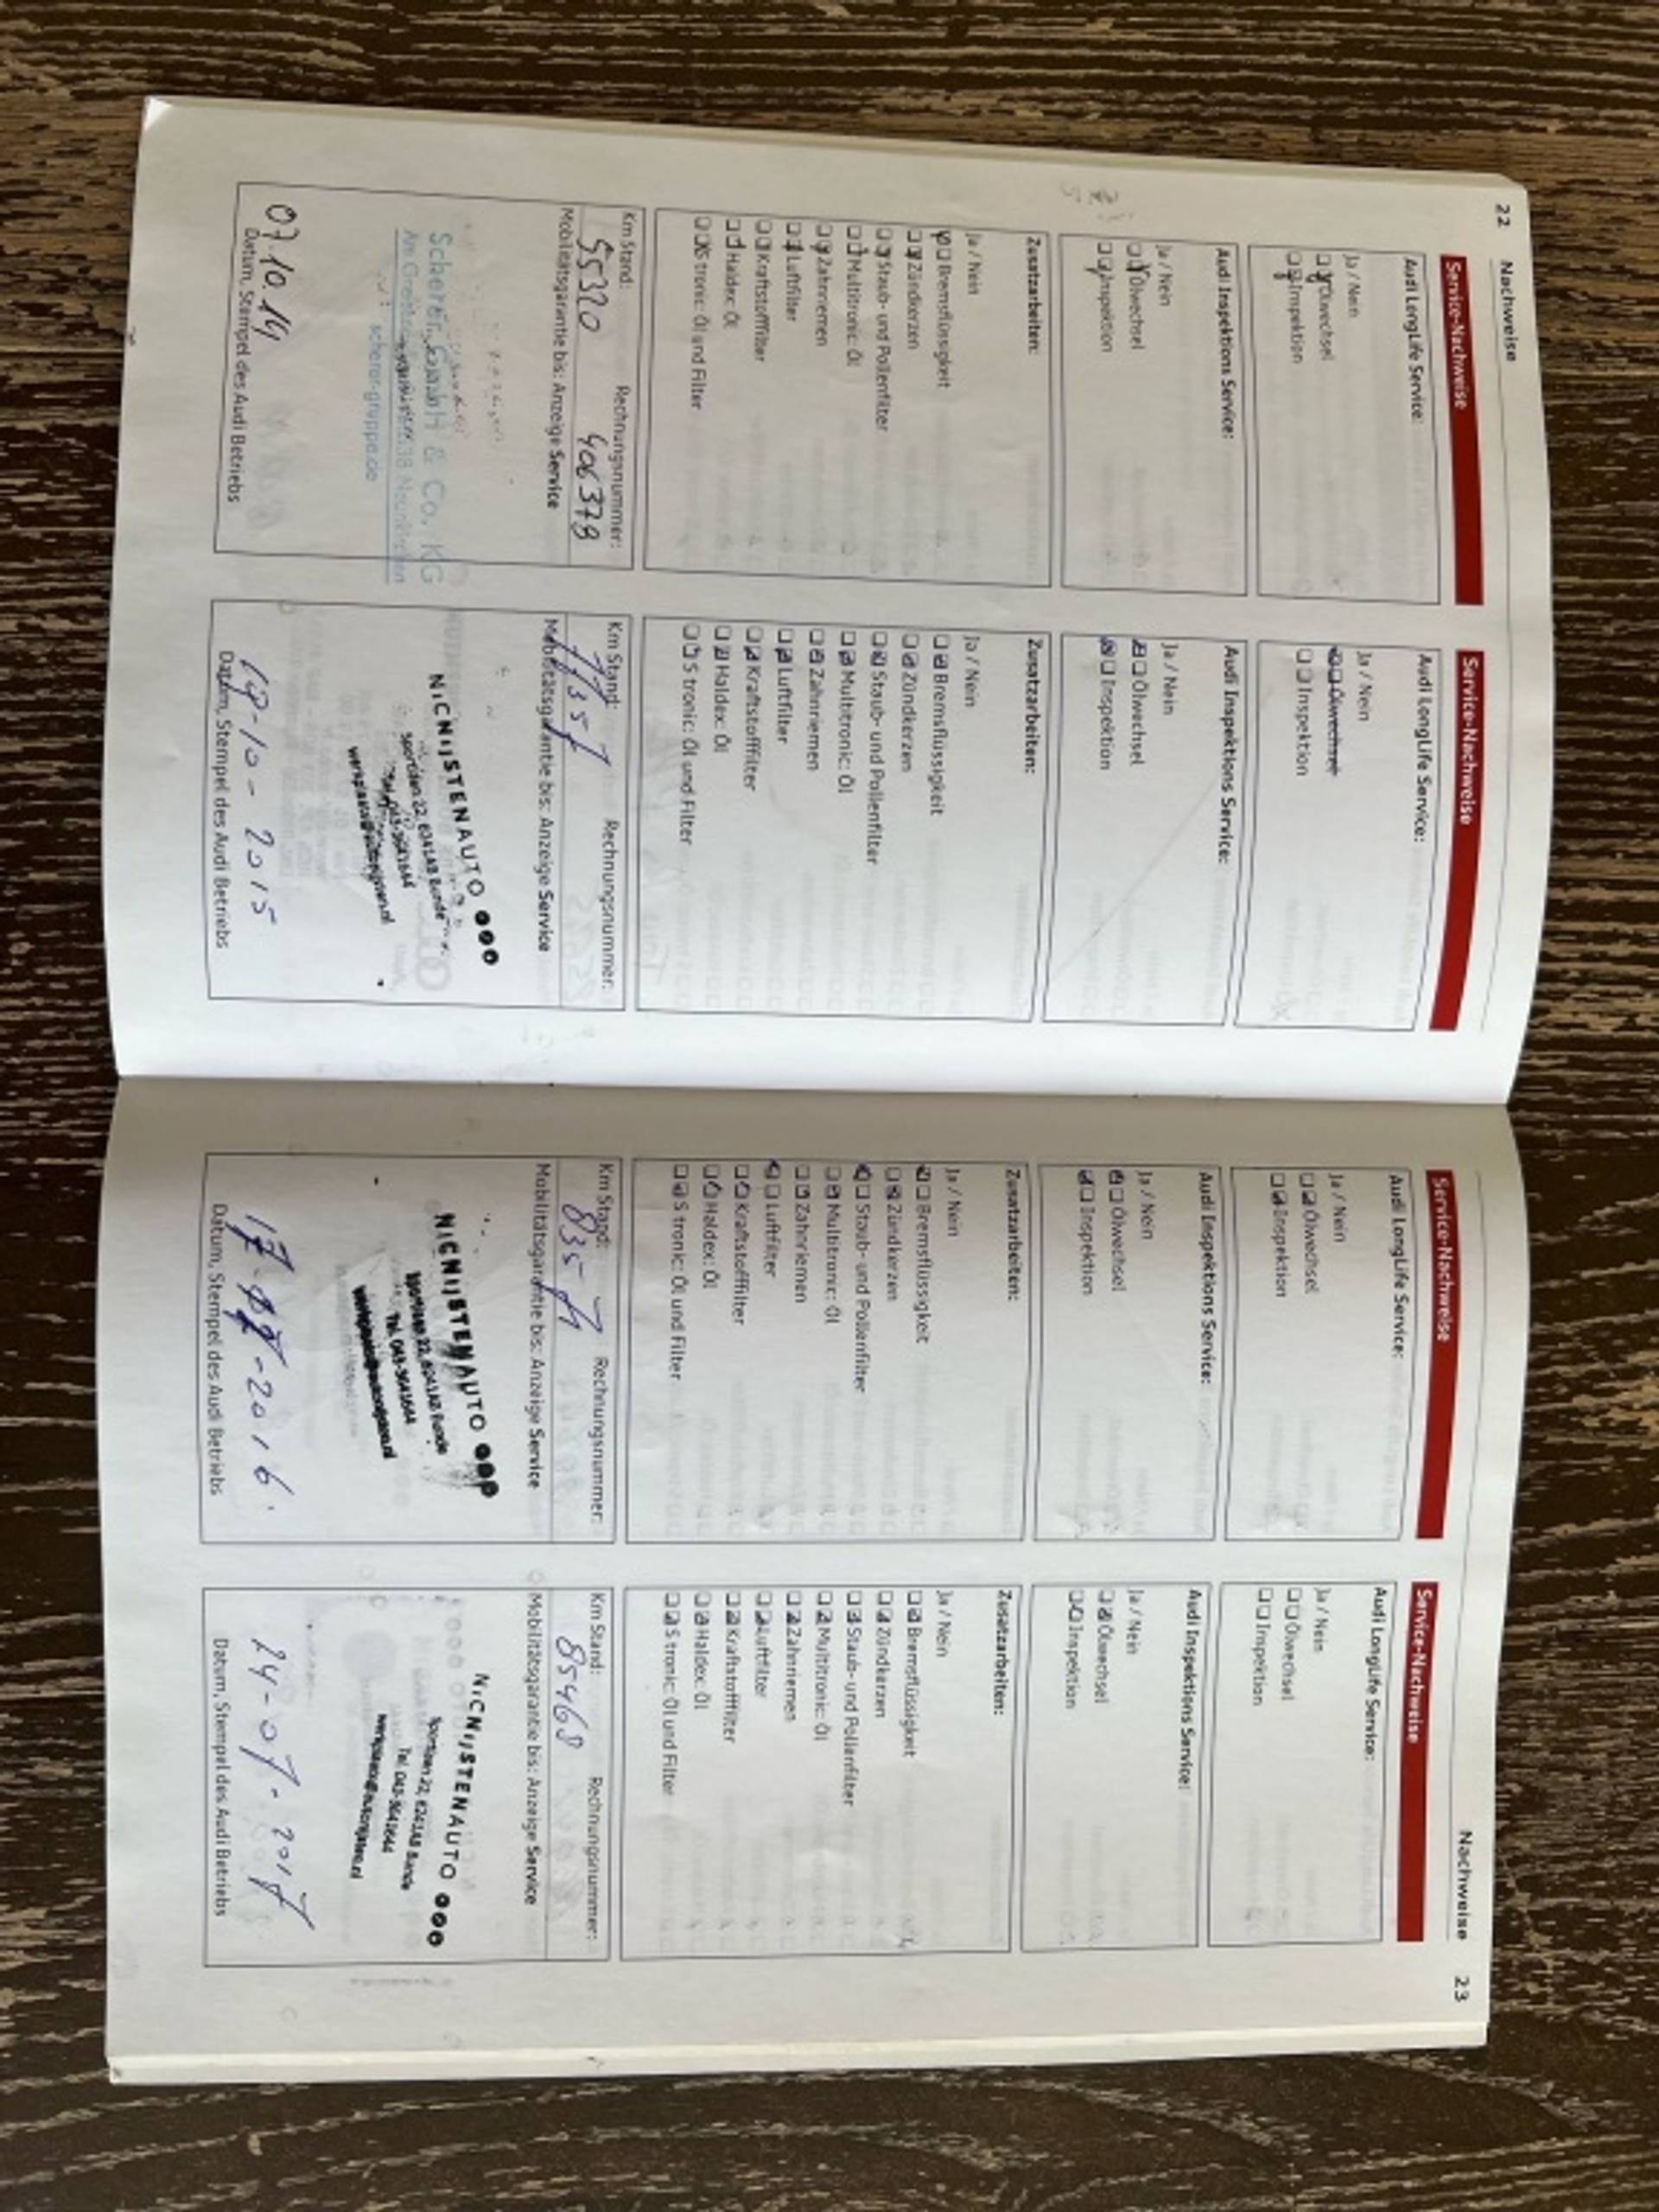 22 Nachweise
Service-Nachweise
Audi LongLife Service:
Ja / Nein
Ölwechsel
Inspektion
Audi Inspektions Service:
Ja / Nein
Ölwechsel
Inspektion
Zusatzarbeiten:
Ja / Nein
Bremsflüssigkeit
Zündkerzen
Staub- und Pollenfilter
Multitronic: Öl
Zahnriemen
Luftfilter
Kraftstofffilter
Haldex: Öl
S tronic: Öl und Filter
Km Stand: Rechnungsnummer:
55320 406378
Mobilitätsgarantie bis: Anzeige Service
Scherer GmbH & Co. KG
Neunkirchen
scherer-gruppe.de
07.10.14
Datum, Stempel des Audi Betriebs
Service-Nachweise
Audi LongLife Service:
Ja / Nein
Ölwechsel
Inspektion
Audi Inspektions Service:
Ja / Nein
Ölwechsel
Inspektion
Zusatzarbeiten:
Ja / Nein
Bremsflüssigkeit
Zündkerzen
Staub- und Pollenfilter
Multitronic: Öl
Zahnriemen
Luftfilter
Kraftstofffilter
Haldex: Öl
S tronic: Öl und Filter
Km Stand: Rechnungsnummer:
Mobilitätsgarantie bis: Anzeige Service
NICNIJSTENAUTO
Sportlaan 22, 6241AB Bunde
Tel. 043-3641644
Datum, Stempel des Audi Betriebs
Service-Nachweise
Audi LongLife Service:
Ja / Nein
Ölwechsel
Inspektion
Audi Inspektions Service:
Ja / Nein
Ölwechsel
Inspektion
Zusatzarbeiten:
Ja / Nein
Bremsflüssigkeit
Zündkerzen
Staub- und Pollenfilter
Multitronic: Öl
Zahnriemen
Luftfilter
Kraftstofffilter
Haldex: Öl
S tronic: Öl und Filter
Km Stand: Rechnungsnummer:
Mobilitätsgarantie bis: Anzeige Service
NICNIJSTENAUTO
Sportlaan 22, 6241AB Bunde
Tel. 043-3641644
Datum, Stempel des Audi Betriebs
Nachweise 23
Service-Nachweise
Audi LongLife Service:
Ja / Nein
Ölwechsel
Inspektion
Audi Inspektions Service:
Ja / Nein
Ölwechsel
Inspektion
Zusatzarbeiten:
Ja / Nein
Bremsflüssigkeit
Zündkerzen
Staub- und Pollenfilter
Multitronic: Öl
Zahnriemen
Luftfilter
Kraftstofffilter
Haldex: Öl
S tronic: Öl und Filter
Km Stand: Rechnungsnummer:
85468
Mobilitätsgarantie bis: Anzeige Service
NICNIJSTENAUTO
Sportlaan 22, 6241AB Bunde
Tel. 043-3641644
14-07-2017
Datum, Stempel des Audi Betriebs